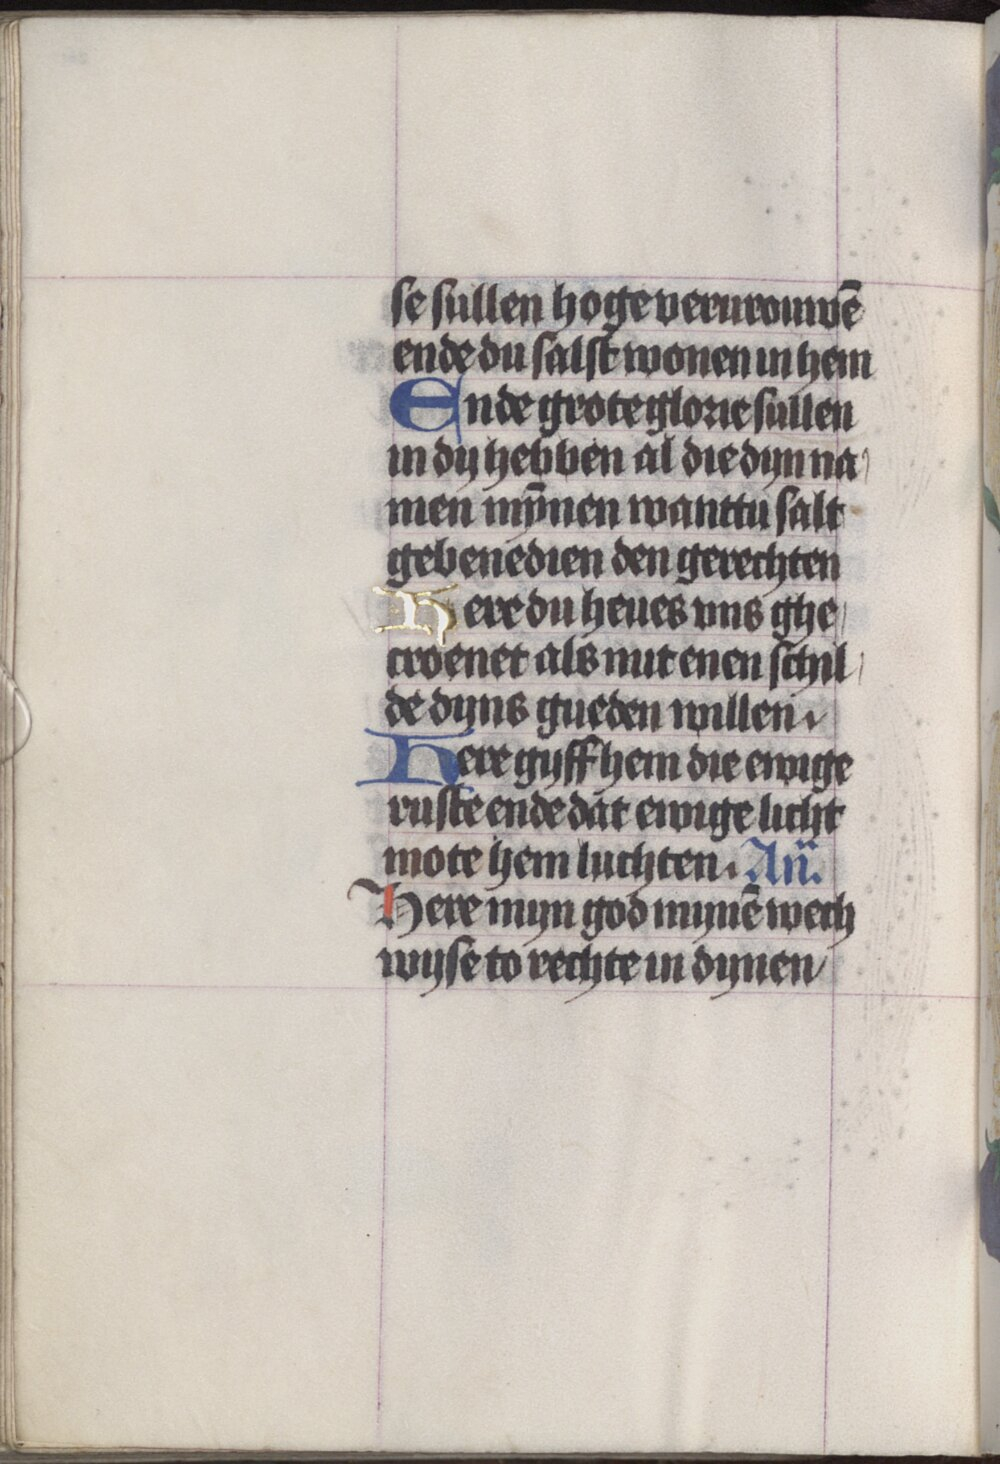 se sullen hoge vervrouwē
ende du salst wonen in hem
Ende grote glorie sullen
in dy hebben al die dyn na
men mȳnen wanttu salt
gebenedien den gerechten
Here du heues vns ghe
croenet als mit enen schil
de dyns gueden willen.
Here gyff hem die ewige
ruste ende dat ewige licht
mote hem luchten. An̄.
Here myn god mynē wech
wyse to rechte in dynen